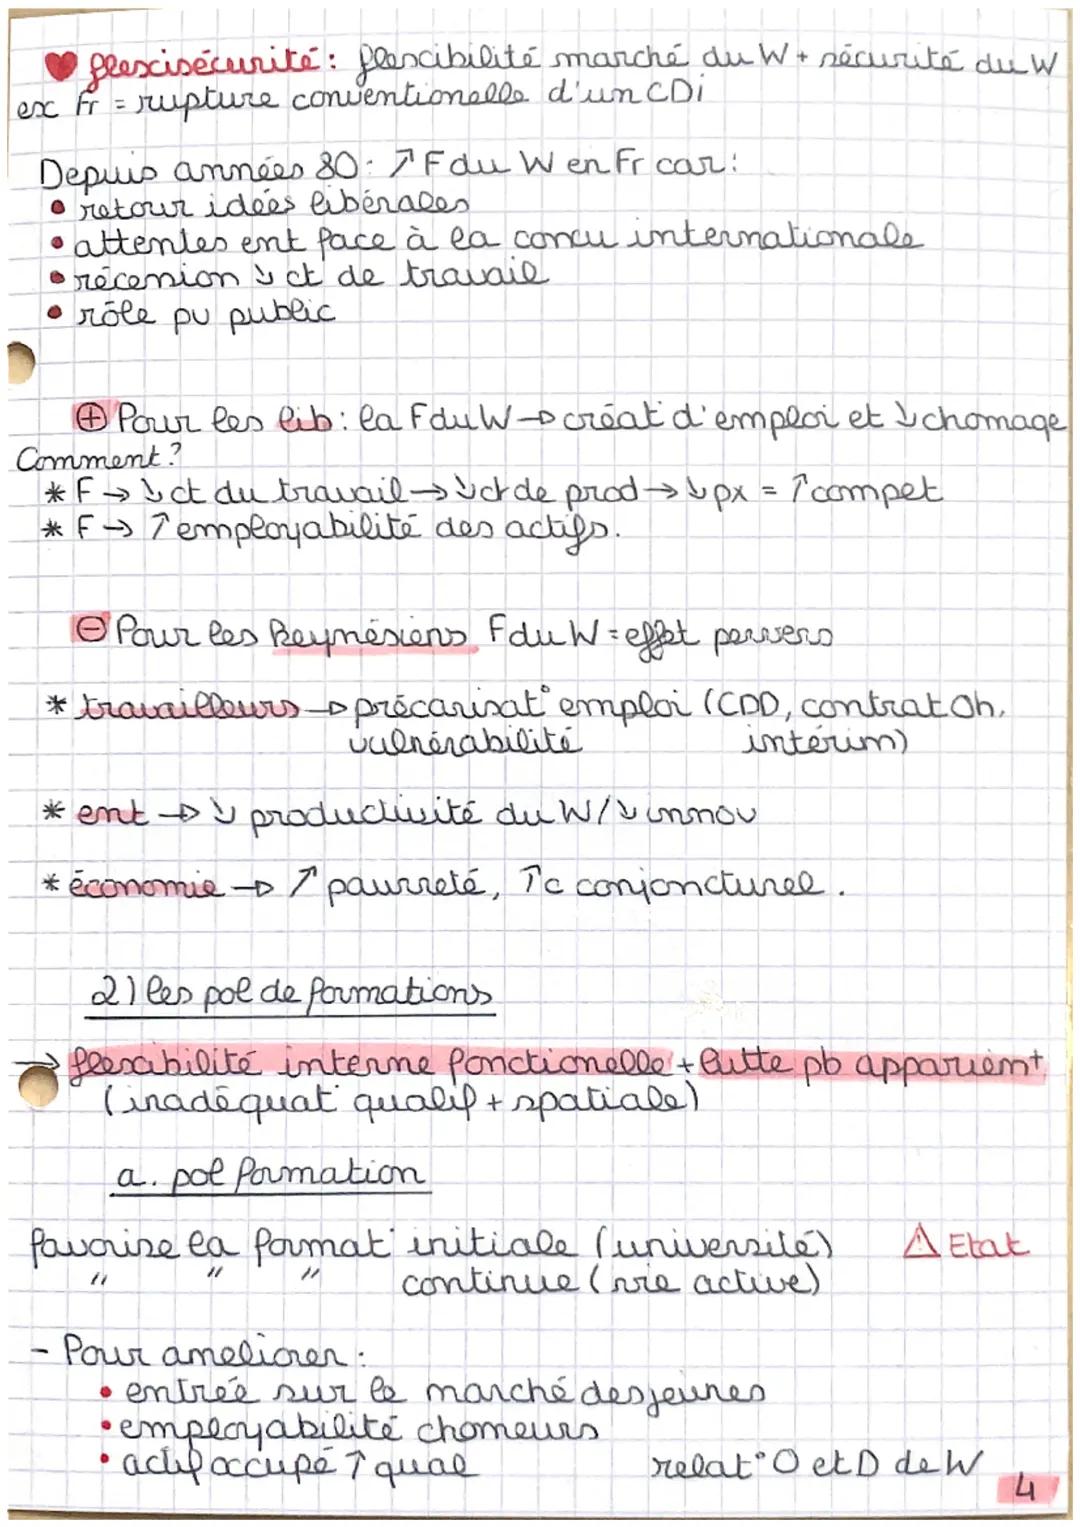 ♥ flexisécurité: flexcibilité marché du W + sécurité du W
ex Fr = rupture conventionelle d'un CDi
Depuis années 80: ↗ F du W en Fr car:
• retour idées libérales
• attentes ent face à la concu internationale
• récension ↘ ct de travail
• rôle pv public
⊕ Pour les lib: la F du W → créat° d'emploi et ↘ chomage
Comment?
* F → ↘ ct du travail → ↘ ct de prod → ↘ px = ↗ compet
* F → ↗ employabilité des actifs.
⊖ Pour les Keynésiens F du W = effet pervers
* travailleurs → précarisat° emploi (CDD, contrat Oh,
vulnérabilité intérim)
* ent → ↘ productivité du W / ↘ innov
* économie → ↗ pauvreté, ↑ c conjoncturel.
2) les pol de formations
→ flexcibilité interne fonctionelle + lutte pb appariemt
(inadéquat° qualif + spatiale)
a. pol formation
favorise la format° initiale (université) ⚠ Etat
" " " continue (vie active)
- Pour ameliorer:
• entrée sur le marché des jeunes
• employabilité chomeurs
• actif occupé ↑ qual relat° O et D de W
4